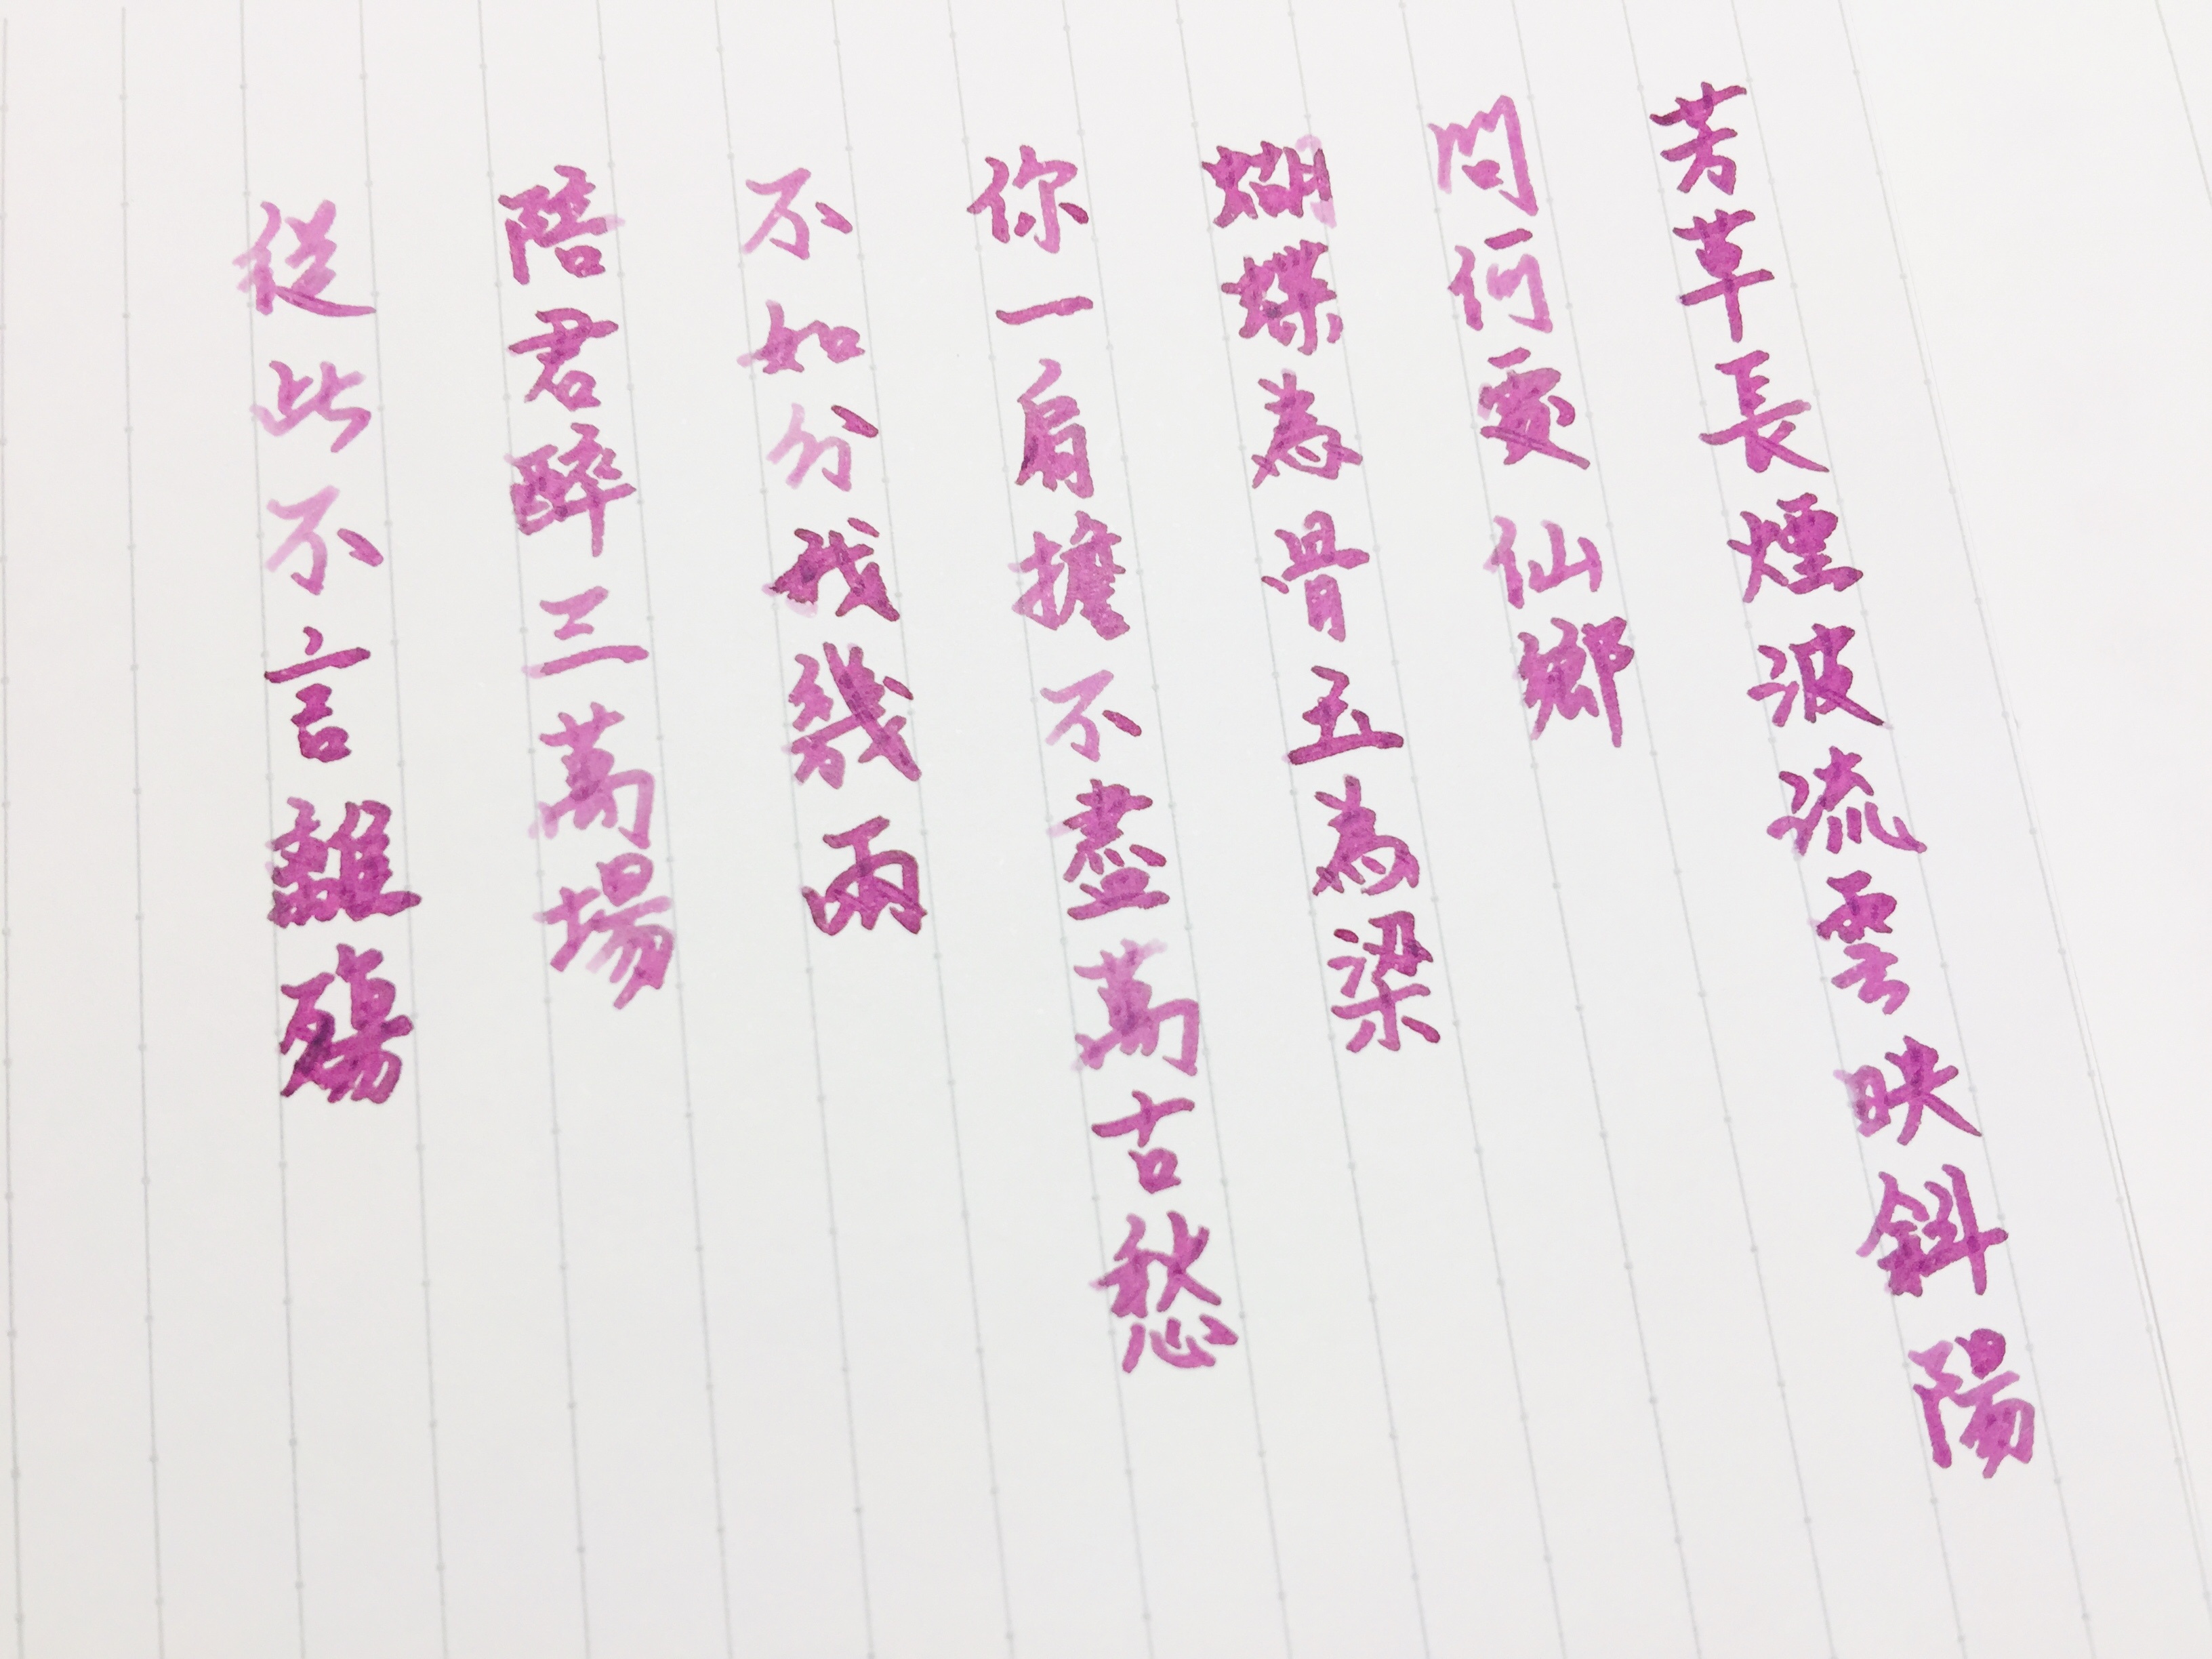 芳草長煙波流雲映斜陽
問何處仙鄉
蝴蝶為骨玉為梁
你一肩擔不盡萬古愁
不如分我幾兩
陪君醉三萬場
從此不言離殤